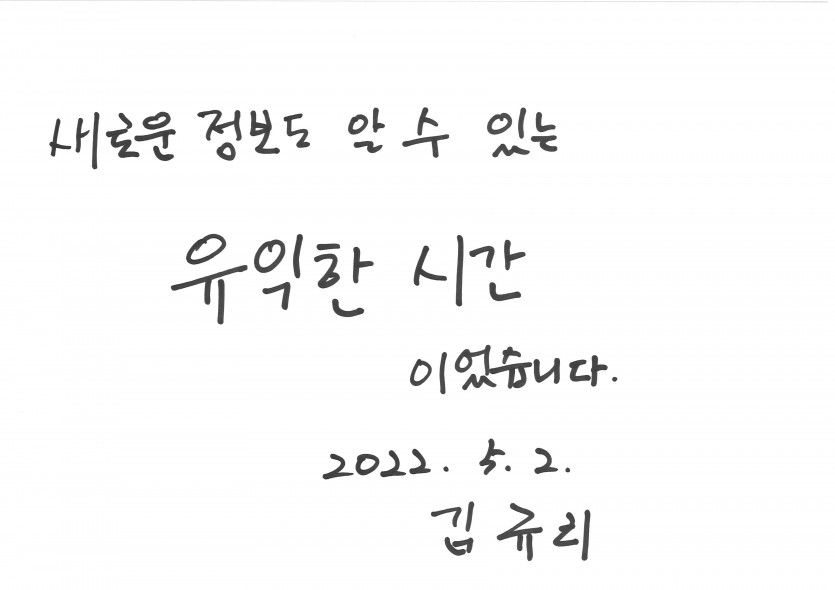 새로운 정보도 알 수 있는
유익한 시간
이었습니다.
2022. 5. 2.
김규리